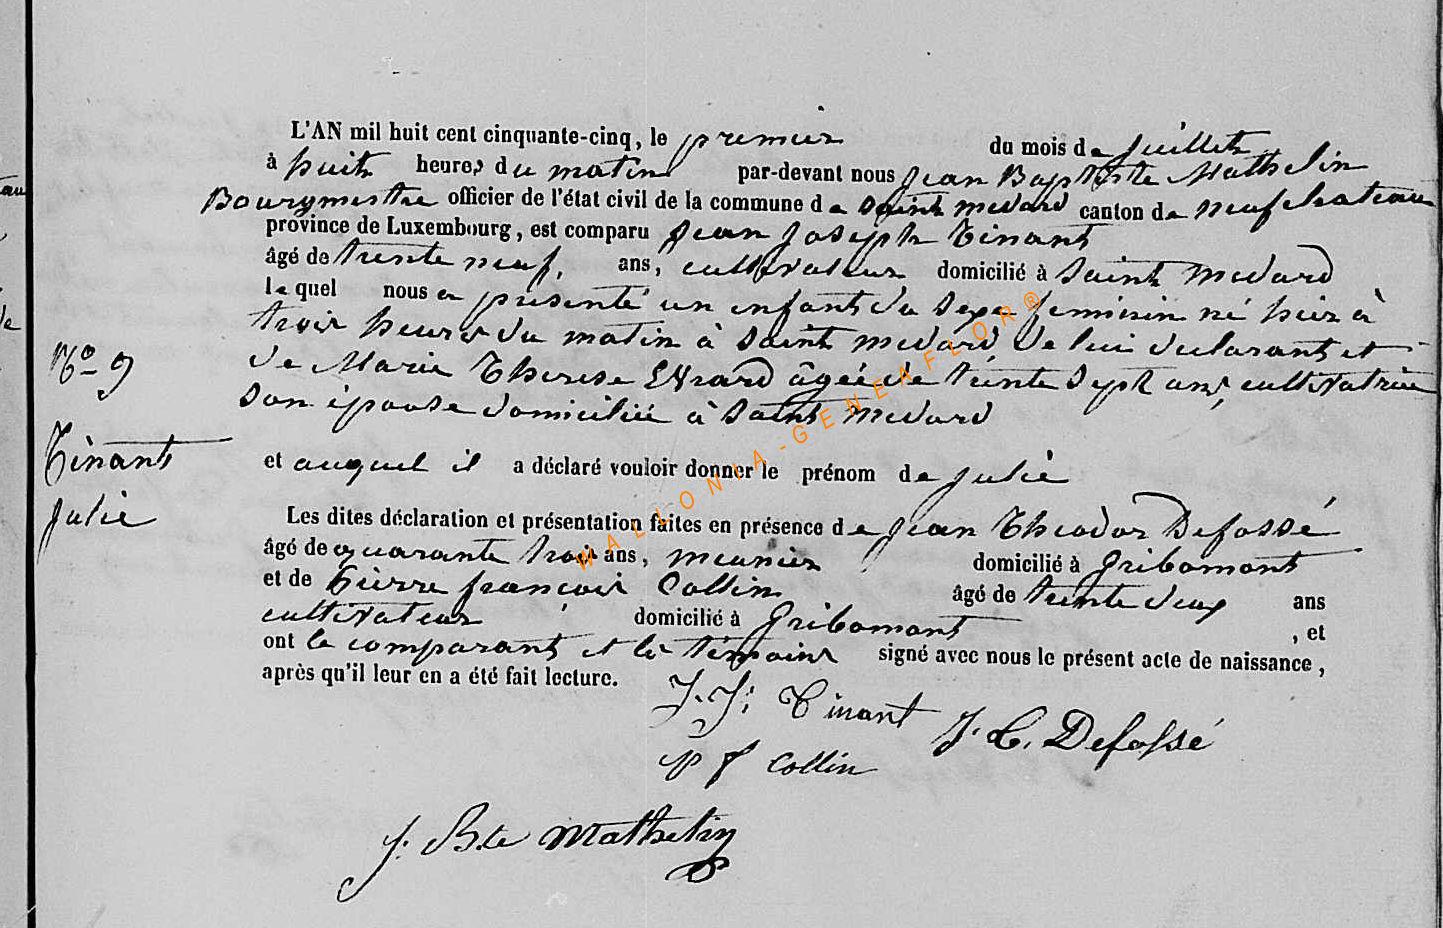 L'AN mil huit cent cinquante-cinq, le premier du mois de juillet
à huit heures du matin par-devant nous jean Baptiste Mathelin
Bourgmestre officier de l'état civil de la commune de Saint médard canton de neufchateau
province de Luxembourg, est comparu jean joseph Tinant
âgé de trente neuf, ans, cultivateur domicilié à Saint médard
lequel nous a présenté un enfant du Sexe feminin né hier à
trois heures du matin à Saint médard, de lui déclarant et
de Marie Therese Evrard âgée de trente Sept ans, cultivatrice
Son épouse domiciliée à Saint médard
N° 9
Tinant
julie
et auquel il a déclaré vouloir donner le prénom de julie
Les dites déclaration et présentation faites en présence de jean Théodor Defossé
âgé de quarante trois ans, meunier domicilié à gribomont
et de Pierre françois Collin âgé de trente deux ans
cultivateur domicilié à gribomont, et
ont le comparant et les témoins signé avec nous le présent acte de naissance,
après qu'il leur en a été fait lecture.
J. J. Tinant
J. T. Defossé
p f Collin
j. Bte Mathelin
WALLONIA-GENEAFLOR®